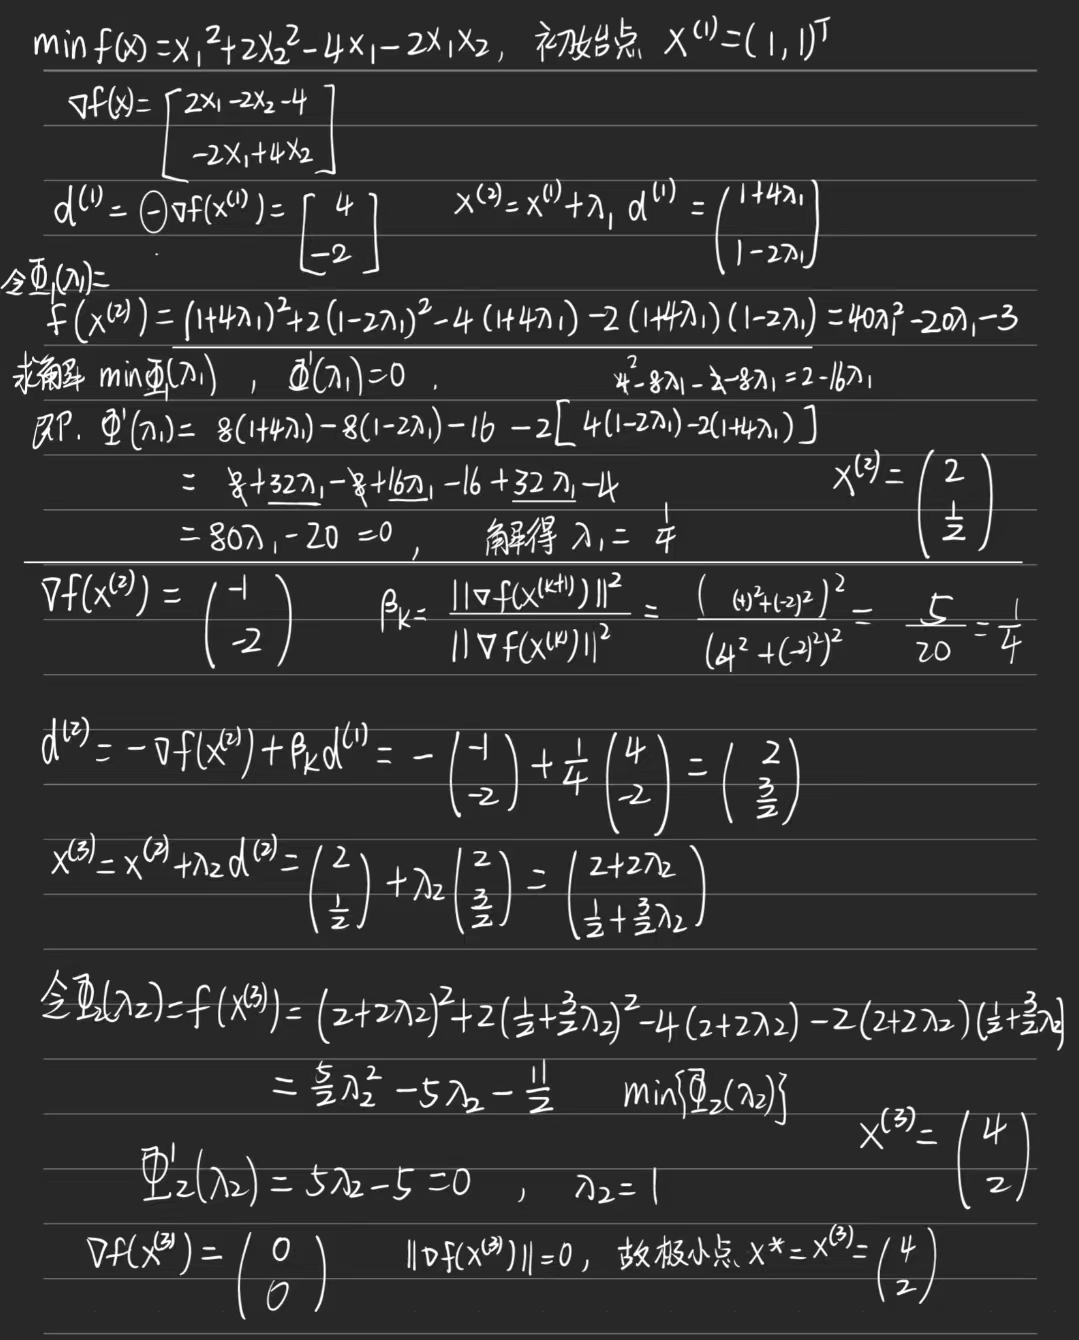 min f(x) = x₁² + 2x₂² - 4x₁ - 2x₁x₂, 初始点 x⁽¹⁾ = (1, 1)ᵀ
∇f(x) = [2x₁ - 2x₂ - 4
-2x₁ + 4x₂]
d⁽¹⁾ = ⊖∇f(x⁽¹⁾) = [4
-2] x⁽²⁾ = x⁽¹⁾ + λ₁ d⁽¹⁾ = (1+4λ₁
1-2λ₁)
令Φ₁(λ₁) =
f(x⁽²⁾) = (1+4λ₁)² + 2(1-2λ₁)² - 4(1+4λ₁) - 2(1+4λ₁)(1-2λ₁) = 40λ₁² - 20λ₁ - 3
求解 min Φ₁(λ₁), Φ'(λ₁) = 0. 4² - 8λ₁ - 2 - 8λ₁ = 2 - 16λ₁
即. Φ'(λ₁) = 8(1+4λ₁) - 8(1-2λ₁) - 16 - 2[4(1-2λ₁) - 2(1+4λ₁)]
= 8 + 32λ₁ - 8 + 16λ₁ - 16 + 32λ₁ - 4 x⁽²⁾ = (2
1/2)
= 80λ₁ - 20 = 0, 解得 λ₁ = 1/4
∇f(x⁽²⁾) = (-1
-2) βₖ = ||∇f(x⁽ᵏ⁺¹⁾)||² / ||∇f(x⁽ᵏ⁾)||² = ((-1)²+(-2)²)² / (4²+(-2)²)² = 5/20 = 1/4
d⁽²⁾ = -∇f(x⁽²⁾) + βₖd⁽¹⁾ = -(-1
-2) + 1/4 (4
-2) = (2
3/2)
x⁽³⁾ = x⁽²⁾ + λ₂d⁽²⁾ = (2
1/2) + λ₂ (2
3/2) = (2+2λ₂
1/2 + 3/2 λ₂)
令Φ₂(λ₂) = f(x⁽³⁾) = (2+2λ₂)² + 2(1/2 + 3/2 λ₂)² - 4(2+2λ₂) - 2(2+2λ₂)(1/2 + 3/2 λ₂)
= 5/2 λ₂² - 5λ₂ - 11/2 min{Φ₂(λ₂)}
x⁽³⁾ = (4
2)
Φ'₂(λ₂) = 5λ₂ - 5 = 0, λ₂ = 1
∇f(x⁽³⁾) = (0
0) ||∇f(x⁽³⁾)|| = 0, 故极小点 x* = x⁽³⁾ = (4
2)